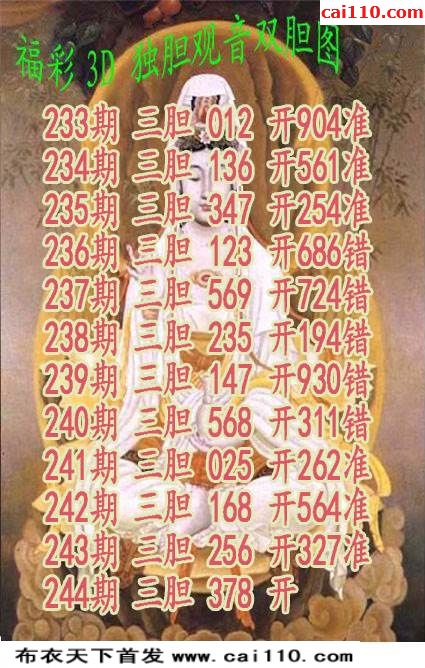 cai110.com
福彩 3D 独胆观音双胆图
233期 三胆 012 开904准
234期 三胆 136 开561准
235期 三胆 347 开254准
236期 三胆 123 开686错
237期 三胆 569 开724错
238期 三胆 235 开194错
239期 三胆 147 开930错
240期 三胆 568 开311错
241期 三胆 025 开262准
242期 三胆 168 开564准
243期 三胆 256 开327准
244期 三胆 378 开
布衣天下首发 www.cai110.com